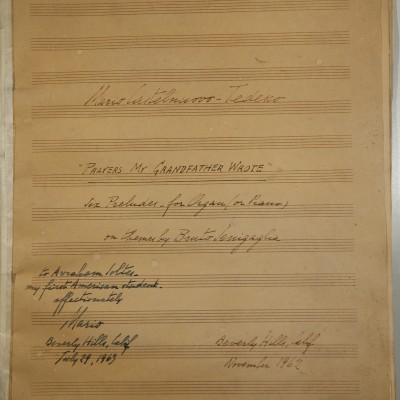 Mario Castelnuovo-Tedesco
"PRAYERS MY GRANDFATHER WROTE"
Six Preludes - for Organ (or Piano)
on themes by Bruto Senigaglia
to Avraham Soltes -
my first American student -
affectionately
Mario
Beverly Hills, Calif
July 29, 1963
Beverly Hills, Calif
November 1962